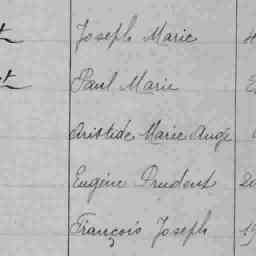 Joseph Marie
Paul Marie
Aristide Marie Ange
Eugène Prudent
François Joseph